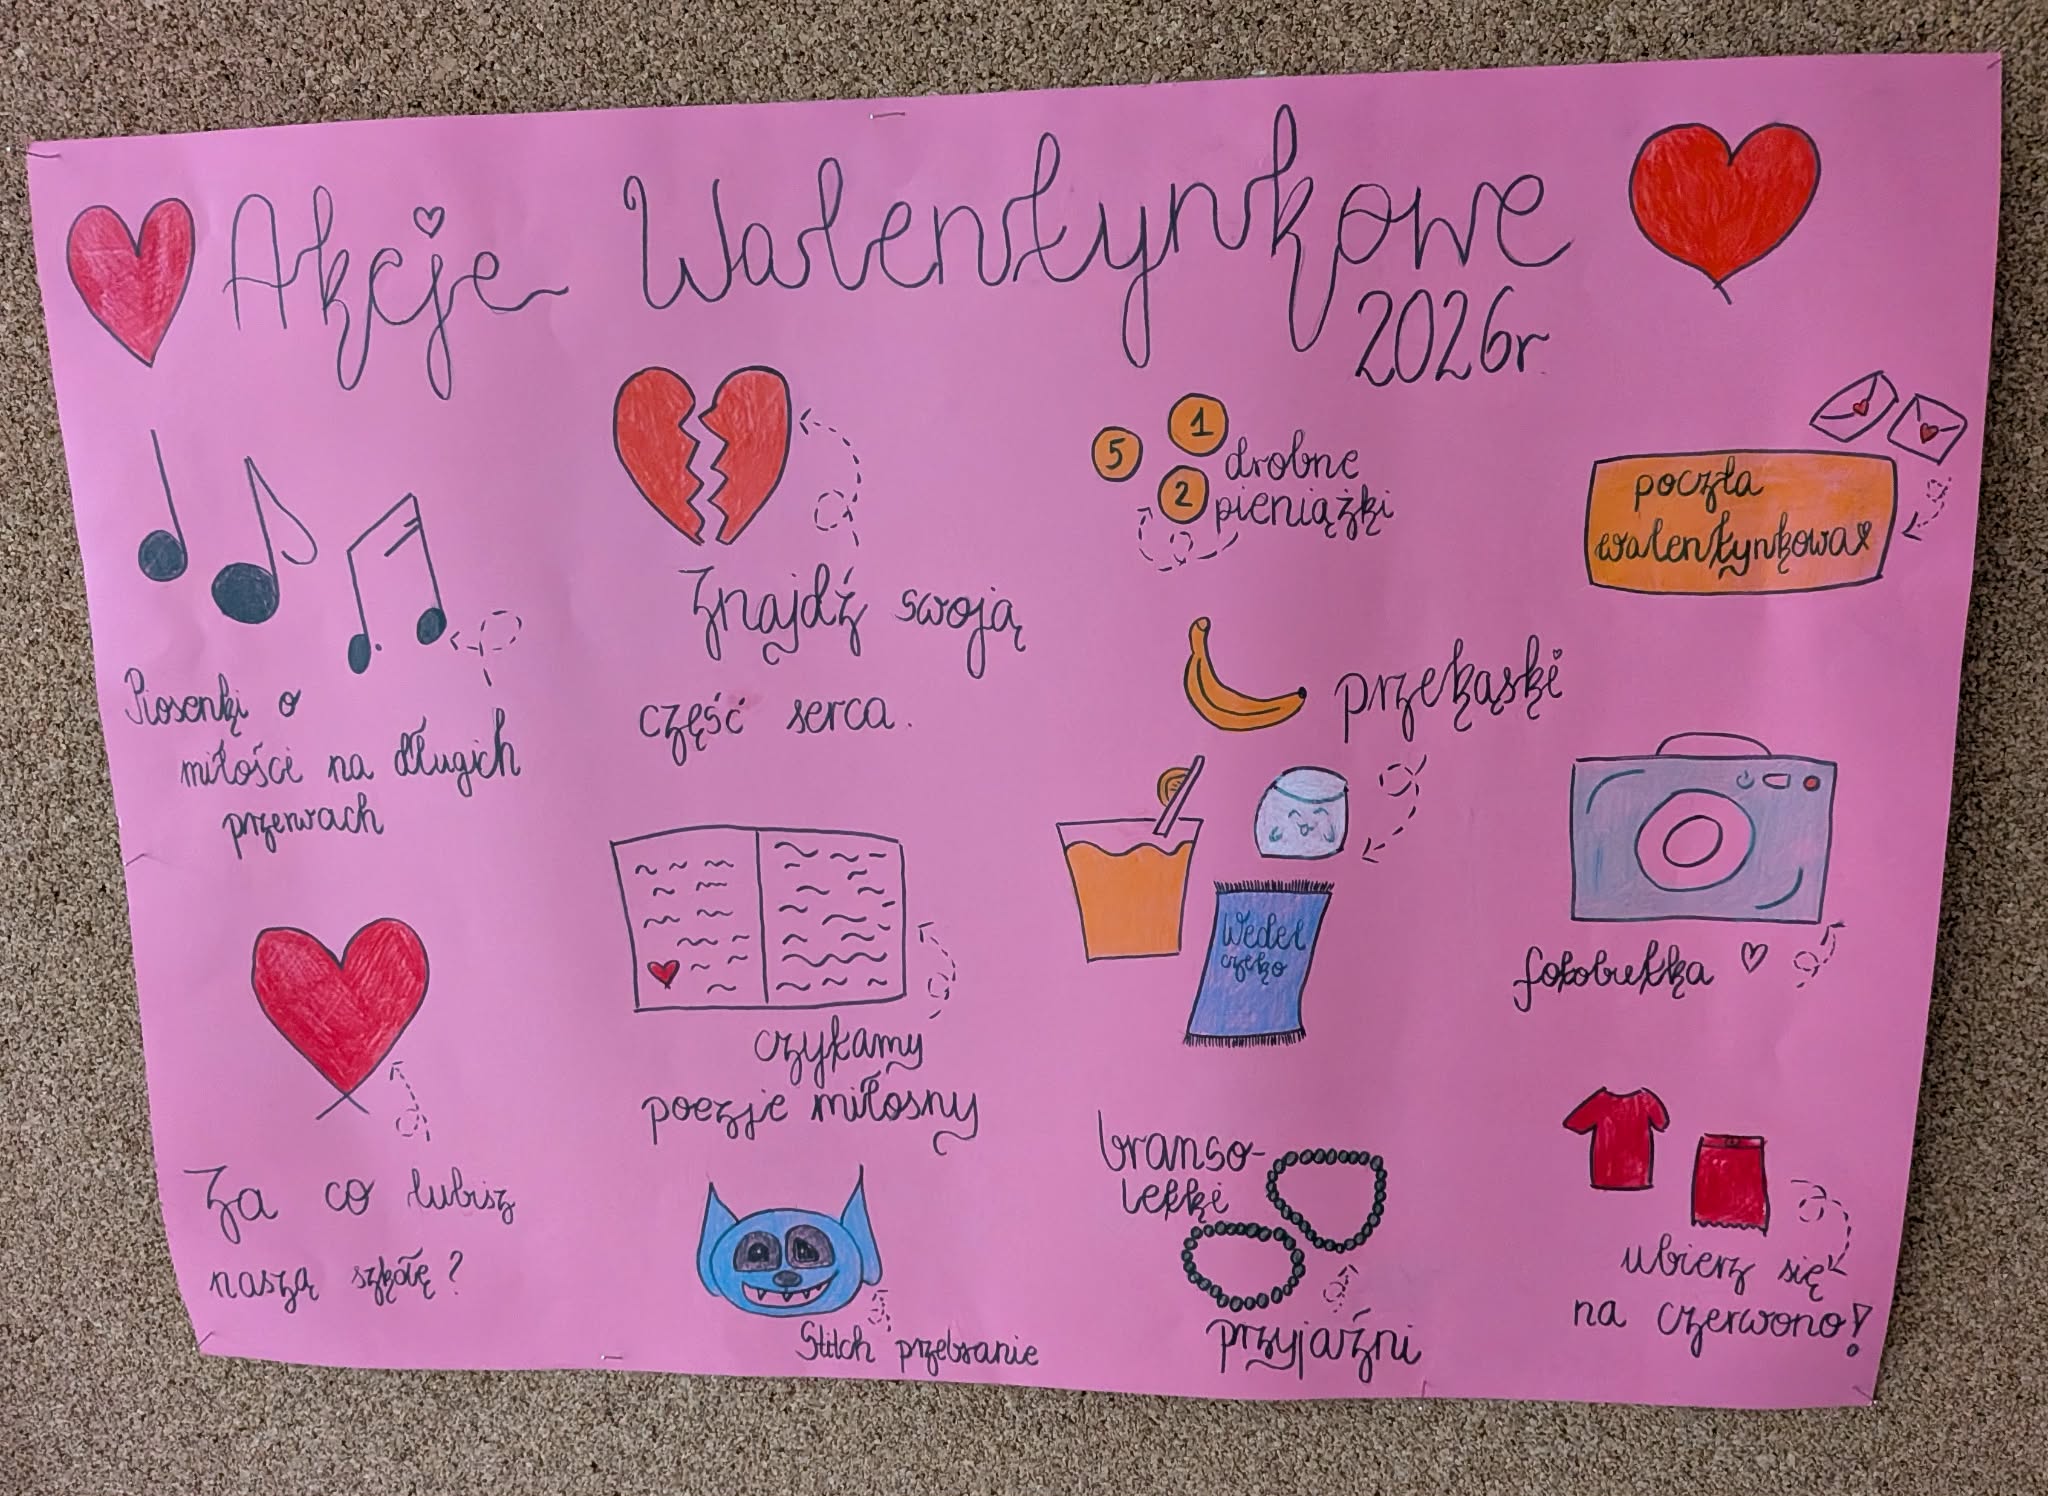 Akcje Walentynkowe
2026r
Piosenki o
miłości na długich
przerwach
Znajdź swoją
część serca.
5
1
2
drobne
pieniążki
poczta
walentynkowa
przekąski
Wedel
czeko
fotobutka
czytamy
poezje miłosny
Za co lubisz
naszą szkołę?
Stitch przebranie
branso-
letki
przyjaźni
ubierz się
na czerwono!